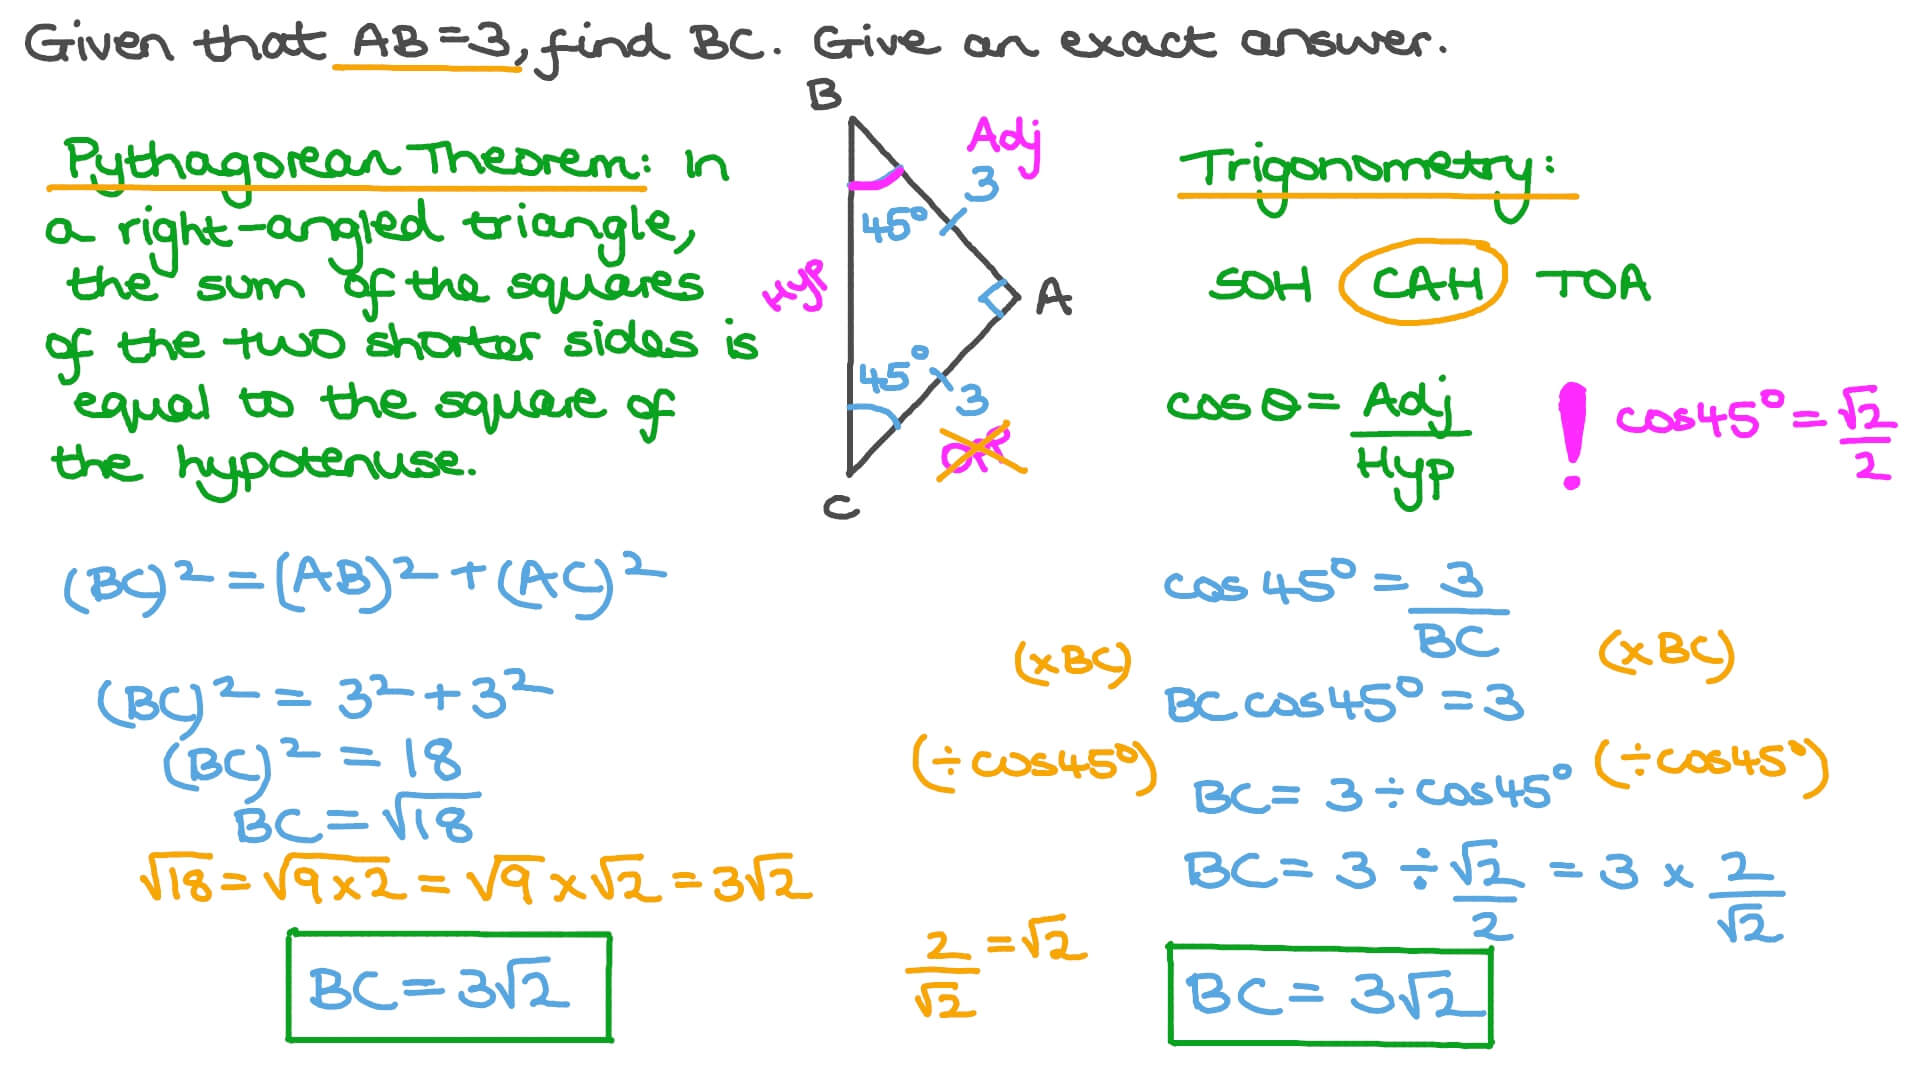 Given that AB=3, find BC. Give an exact answer.
Pythagorean Theorem: In
a right-angled triangle,
the sum of the squares
of the two shorter sides is
equal to the square of
the hypotenuse.
B
Adj
3
45°
Hyp
A
45°
3
Opp
C
Trigonometry:
SOH CAH TOA
cos θ = Adj/Hyp
! cos45° = √2/2
(BC)² = (AB)² + (AC)²
(BC)² = 3² + 3²
(BC)² = 18
BC = √18
√18 = √9×2 = √9 × √2 = 3√2
BC = 3√2
cos 45° = 3/BC
(×BC) (×BC)
BC cos45° = 3
(÷cos45°) (÷cos45°)
BC = 3 ÷ cos45°
BC = 3 ÷ √2/2 = 3 × 2/√2
2/√2 = √2
BC = 3√2